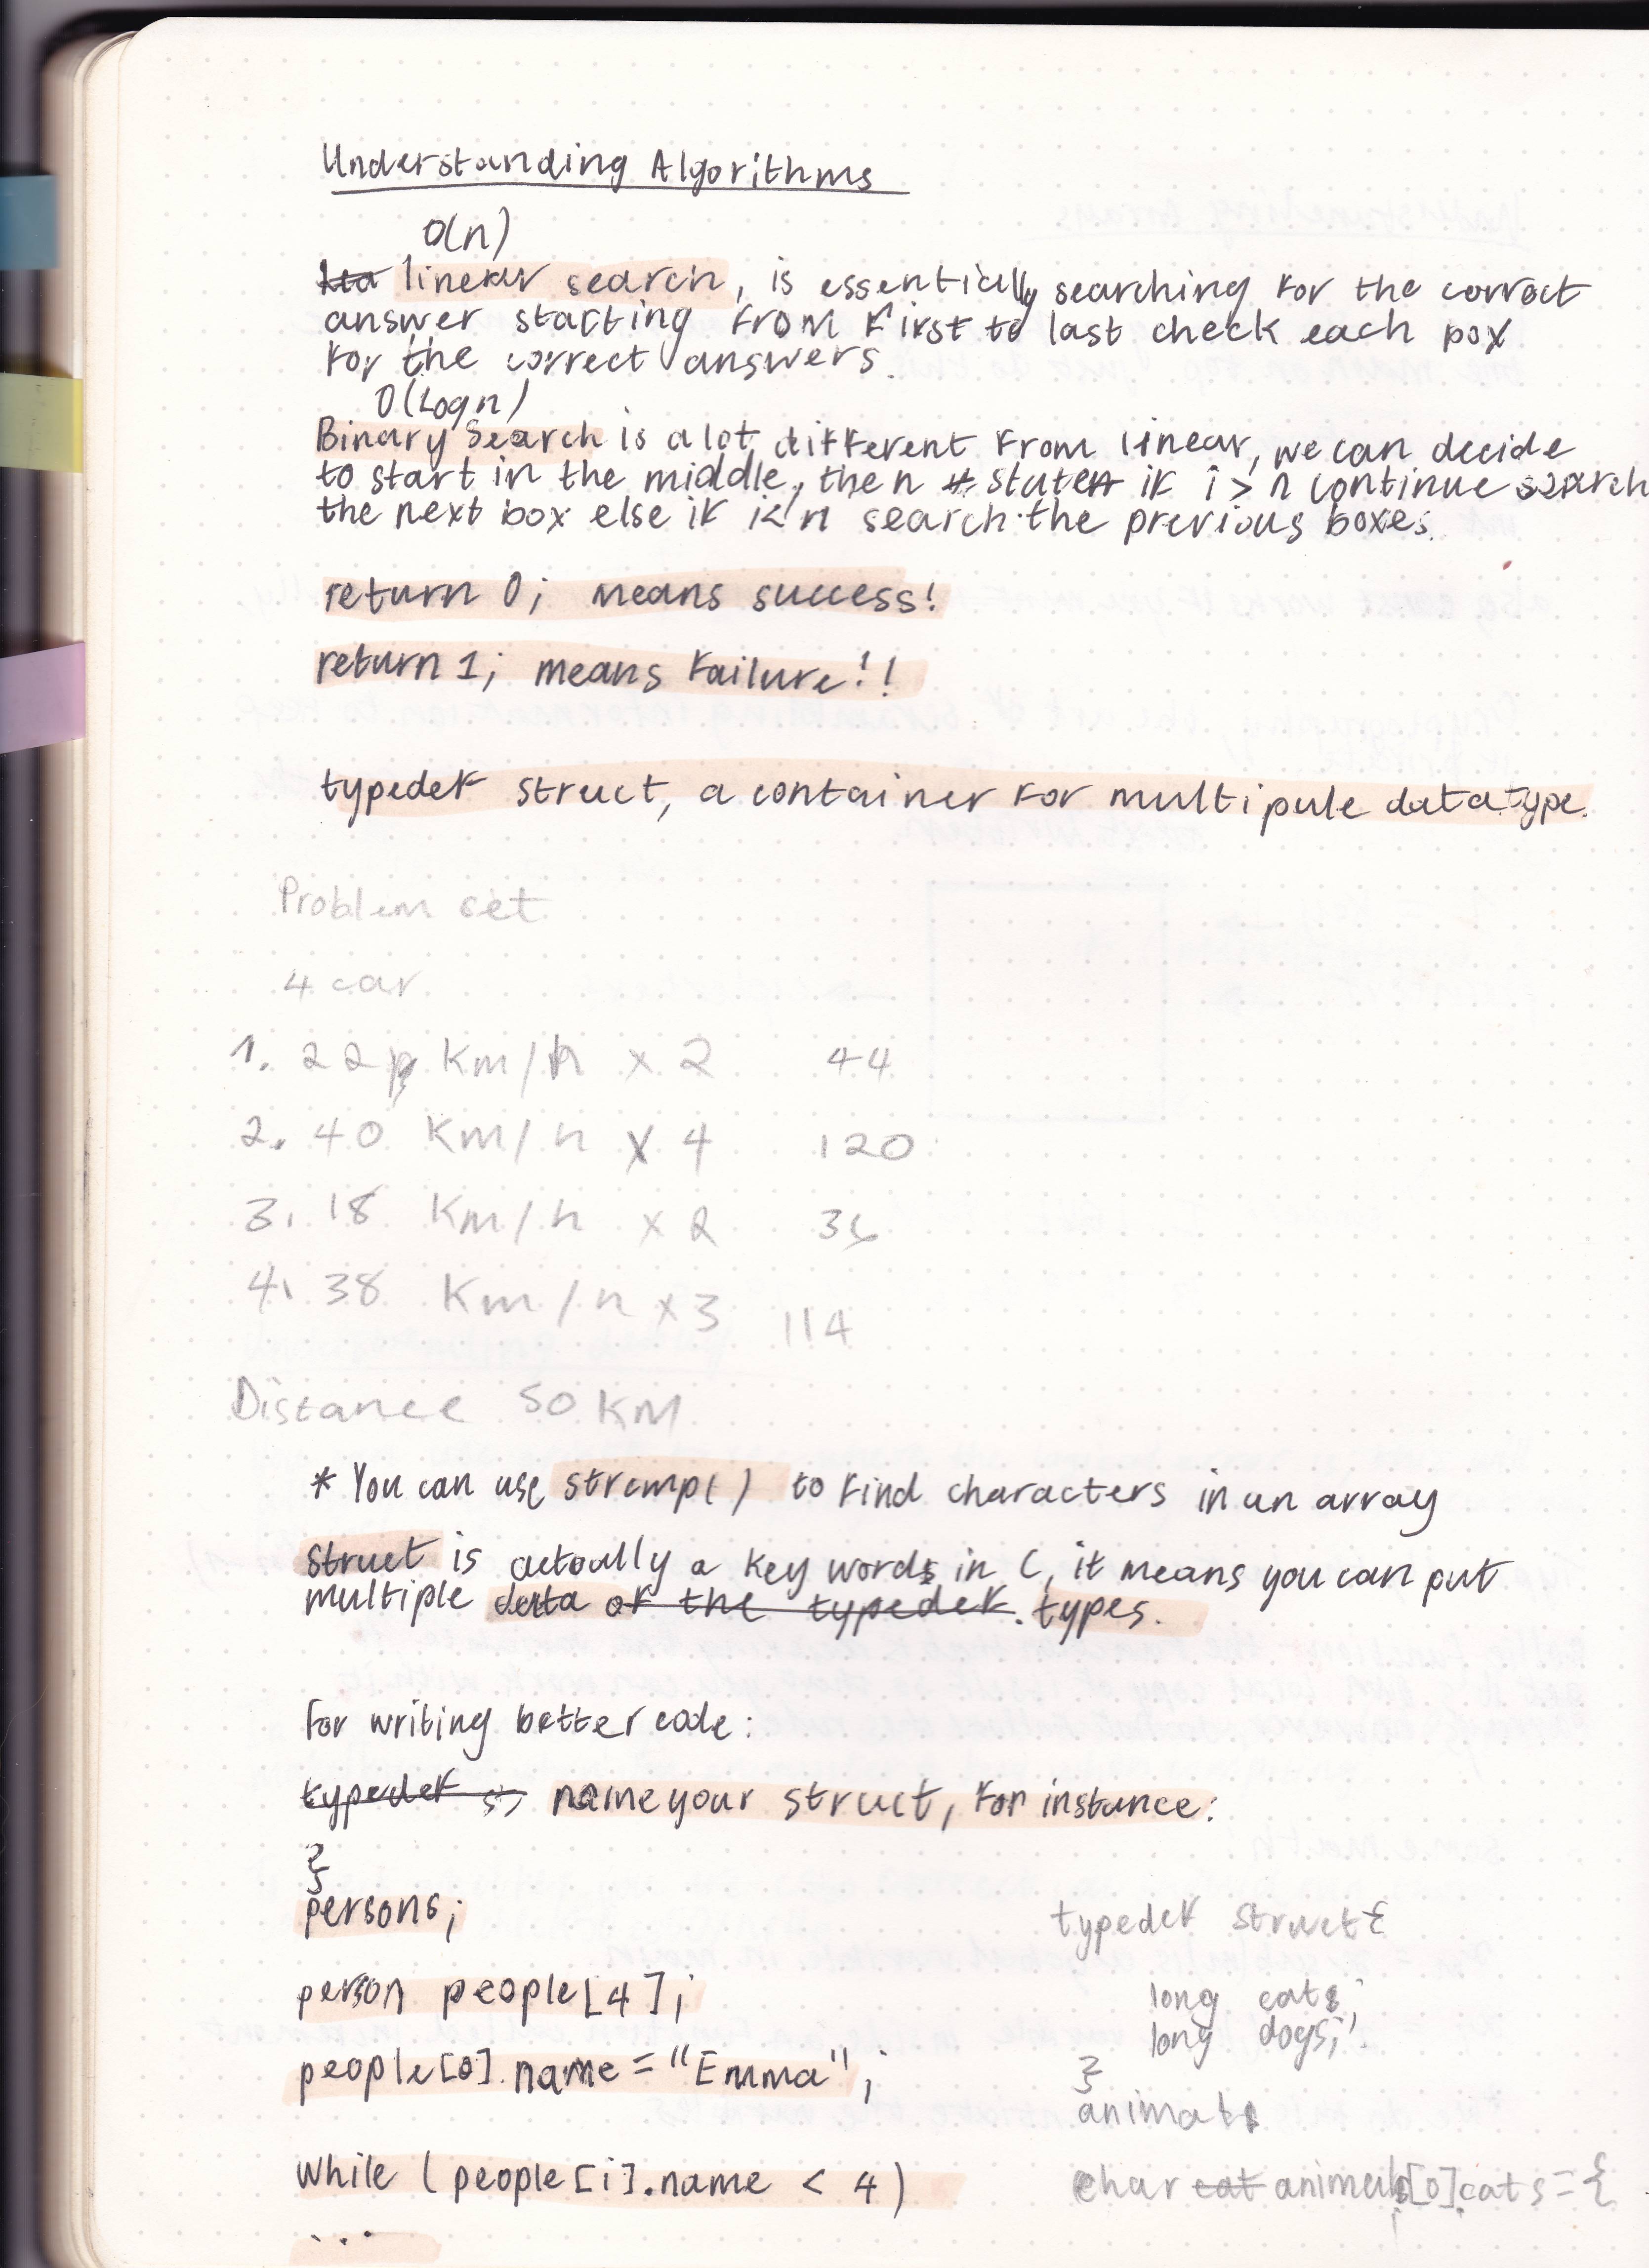 Understanding Algorithms
O(n)
linear search, is essentically searching for the correct
answer starting from first to last check each box
for the correct answers.
O(Log n)
Binary Search is a lot different from linear, we can decide
to start in the middle, then state if i > n continue search
the next box else if i < n search the previous boxes.
return 0; means success!
return 1; means failure!!
typedef struct, a container for multipule data type.
Problem set
4 car
1. 22 Km/h x 2 44
2. 40 Km/h x 4 120
3. 18 Km/h x 2 36
4. 38 Km/h x 3 114
Distance 50 KM
* You can use strcmp() to find characters in an array
struct is actually a key words in C, it means you can put
multiple data of the typedef. types.
For writing better code:
typedef s, name your struct, for instance:
}
persons;
person people[4];
people[0].name = "Emma";
while (people[i].name < 4)
...
typedef struct{
long cats;
long dogs;
}
animals
char cat animals[0]cats = {